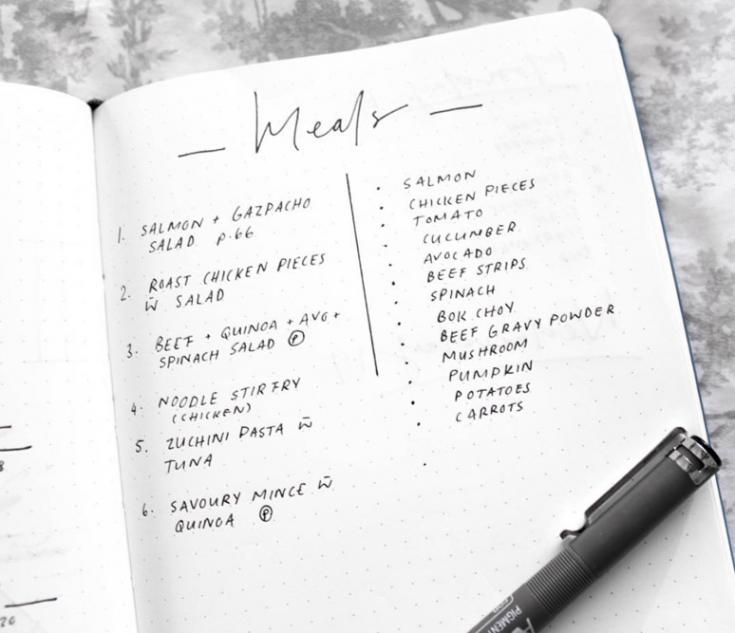 — Meals —
1. SALMON + GAZPACHO
SALAD P.66
2. ROAST CHICKEN PIECES
W̄ SALAD
3. BEEF + QUINOA + AVG +
SPINACH SALAD Ⓟ
4. NOODLE STIR FRY
(CHICKEN)
5. ZUCHINI PASTA W̄
TUNA
6. SAVOURY MINCE W̄
QUINOA Ⓟ
• SALMON
• CHICKEN PIECES
• TOMATO
• CUCUMBER
• AVOCADO
• BEEF STRIPS
• SPINACH
• BOK CHOY
• BEEF GRAVY POWDER
• MUSHROOM
• PUMPKIN
• POTATOES
• CARROTS
PIGMENT